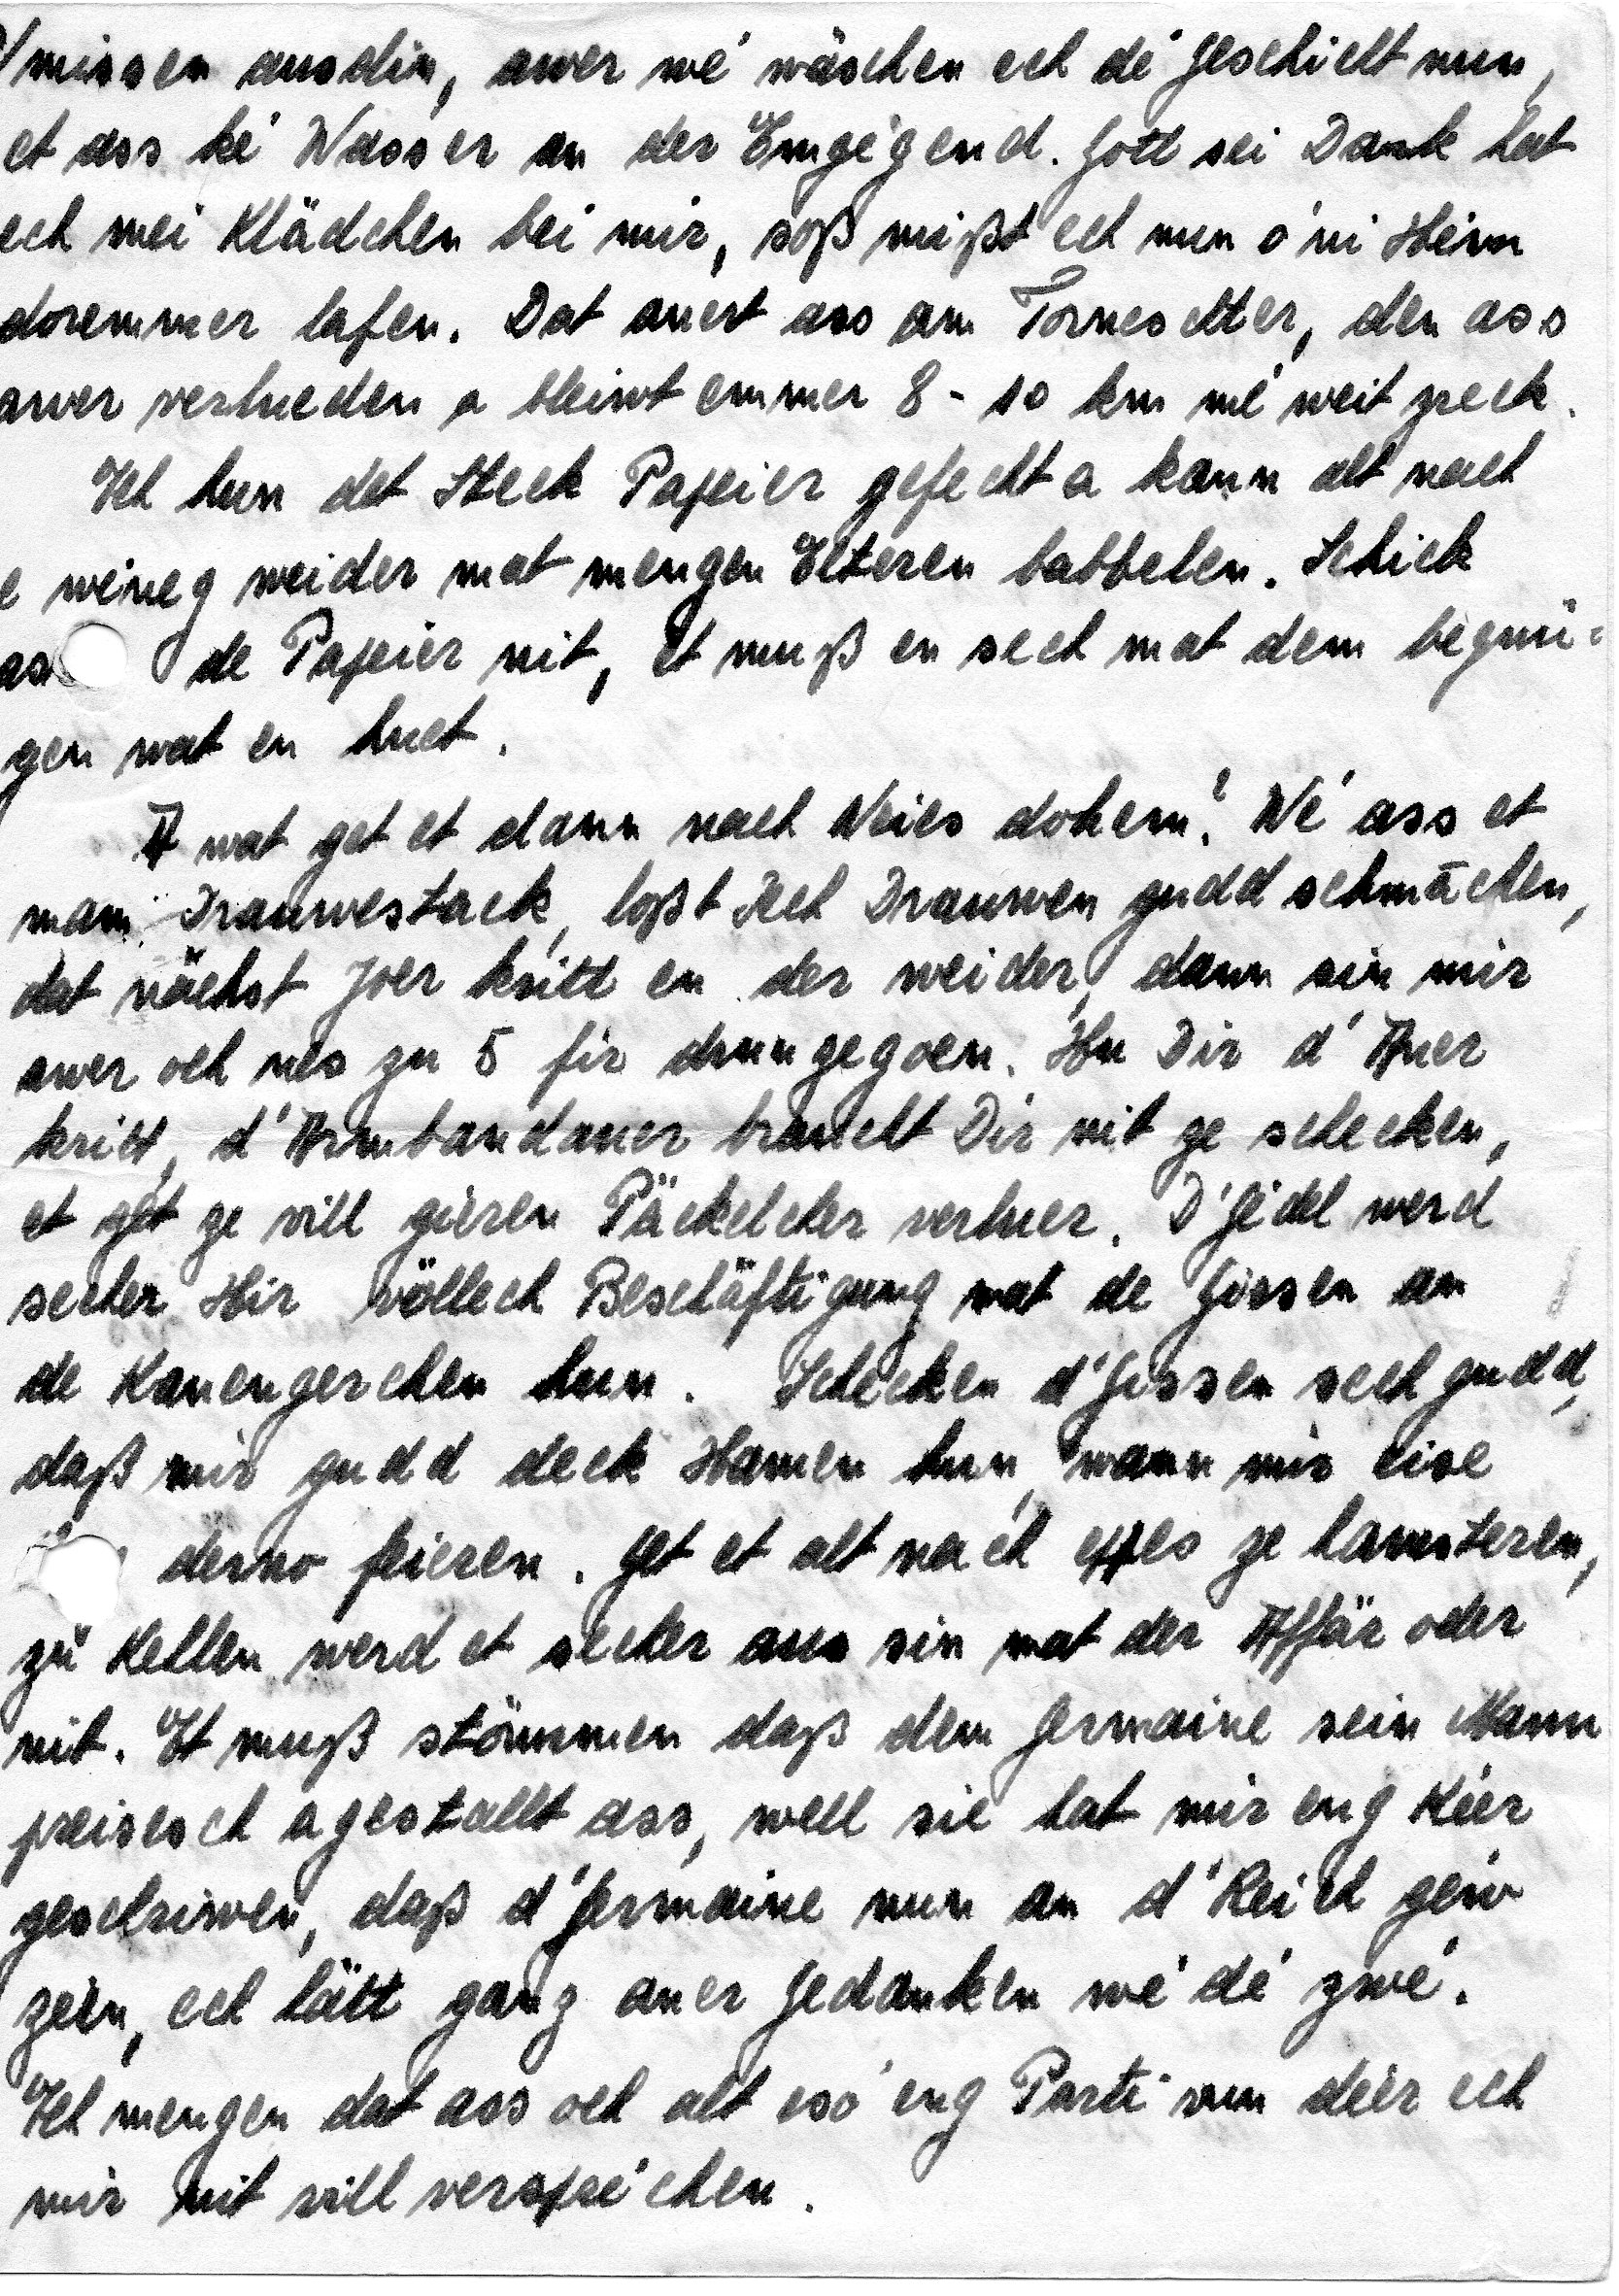 missen ausdin, awer wé wäschen ech dé Geschicht nun,
et ass ké Wasser an der Emgégend. Gott sei Dank hat
ech mei Klädchen bei mir, soß mißt ech nun o'ni Himm
doremmer lafen. Dat anert ass am Tornester, den ass
awer verlueden a bleiwt emmer 8 - 10 km mé weit zreck.
Ech hun det Steck Papeier gefecht a kann alt nach
e wéneg weider mat mengen Elteren babbelen. Schick
as de Papeier nit, et muß en sech mat dem begnü-
gen wat en huet.
A wat get et dann nach Neies dohem? Wé ass et
mam Drauwestack, loßt Iech Drauwen gudd schmächen,
dat nächst Joer kritt en der weider, dann sin mir
awer och nés zu 5 fir drunzegoen. Hu Dir d'Auer
kritt, d'Armbandauer braucht Dir nit ze schecken,
et gét ze vill gieren Päckelcher verluer. D'Gédel werd
secher Hir völlech Beschäftigung mat de Gissen an
de Kanengercher hun. Schécken d'Gissen sech gudd,
daß mir gudd deck Hamen hun, wann mir eise
derno feieren. Get et alt nach eppes ze hamsteren,
zu Kellen werd et secher aus sin mat der Affär oder
nit. Et muß stömmen daß dem Germaine sein Mann
preisesch agestallt ass, well sie hat mir eng Kéier
geschriwen, daß d'Germaine nun an d'Reich géiw
zéin, ech hätt ganz aner Gedanken wé dé zwé.
Ech mengen dat ass och alt esó eng Parti vun déer ech
mir nit vill verspréchen.